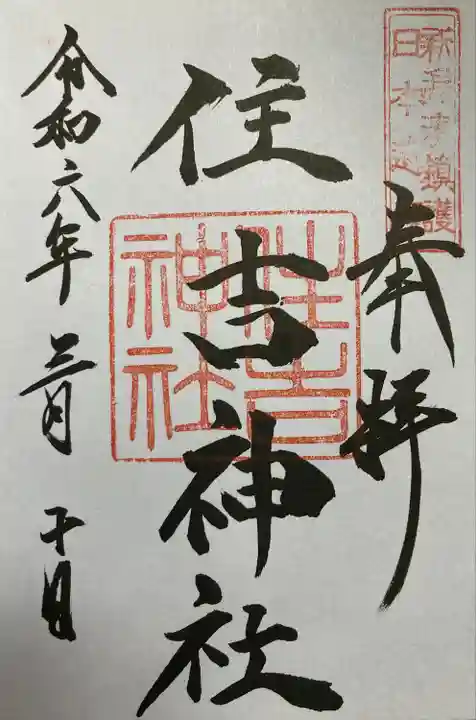 鎮護
奉拝
住吉神社
住吉
神社
令和六年三月十日